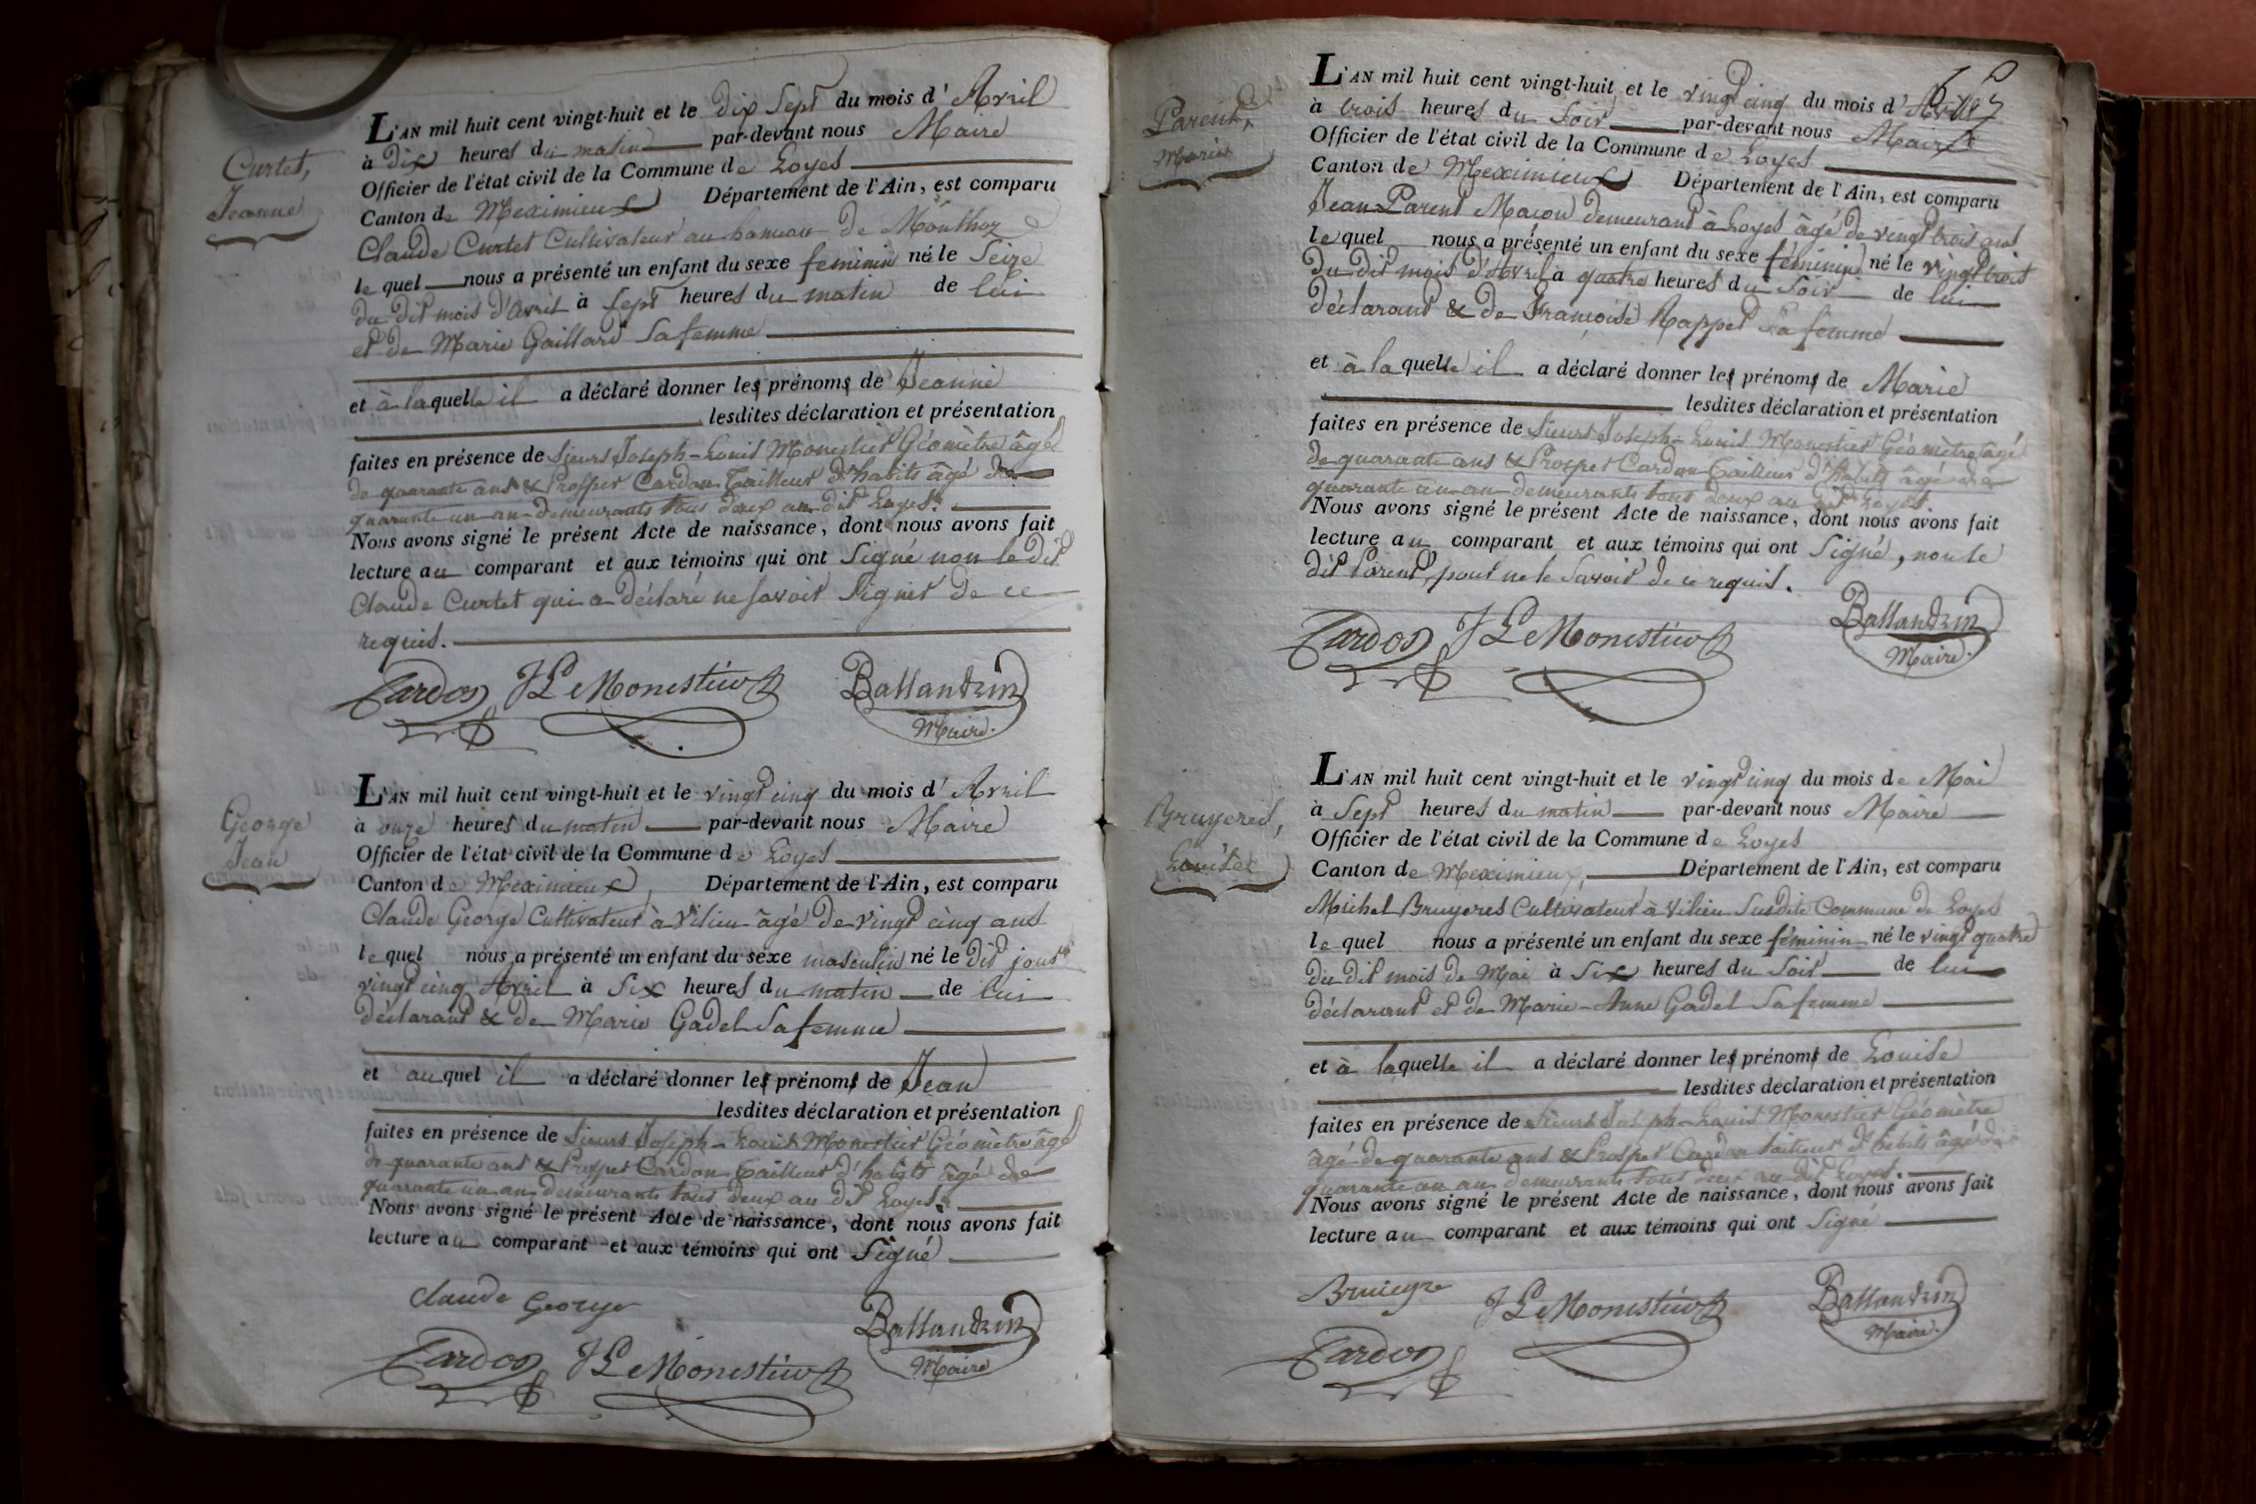 Curtet,
Jeanne
L'AN mil huit cent vingt-huit et le dix Sept du mois d'Avril
à dix heures du matin par-devant nous Maire
Officier de l'état civil de la Commune de Loyes
Canton de Meximieux Département de l'Ain, est comparu
Claude Curtet Cultivateur au hameau de Monthoz
lequel nous a présenté un enfant du sexe feminin né le Seize
du dit mois d'Avril à Sept heures du matin de lui
et de Marie Gaillard Sa femme
et à laquelle il a déclaré donner les prénoms de Jeanne
lesdites déclaration et présentation
faites en présence de Sieurs Joseph-Louis Monestier Géomètre âgé
de quarante ans & Prosper Cardon Tailleur d'habits âgé de
quarante un an demeurants tous deux au dit Loyes.
Nous avons signé le présent Acte de naissance, dont nous avons fait
lecture au comparant et aux témoins qui ont Signé non le dit
Claude Curtet qui a déclaré ne savoir Signer de ce
requis.
Cardon JLeMonestier Ballandrin
Maire.
George
Jean
L'AN mil huit cent vingt-huit et le vingt cinq du mois d'Avril
à onze heures du matin par-devant nous Maire
Officier de l'état civil de la Commune de Loyes
Canton de Meximieux, Département de l'Ain, est comparu
Claude George Cultivateur à Vilieu âgé de vingt cinq ans
lequel nous a présenté un enfant du sexe masculin né le dit jour
vingt cinq Avril à Six heures du matin de lui
déclarant & de Marie Gadel Sa femme
et auquel il a déclaré donner les prénoms de Jean
lesdites déclaration et présentation
faites en présence de Sieurs Joseph-Louis Monestier Géomètre âgé
de quarante ans & Prosper Cardon Tailleur d'habits âgé de
quarante un an demeurants tous deux au dit Loyes.
Nous avons signé le présent Acte de naissance, dont nous avons fait
lecture au comparant et aux témoins qui ont Signé
Claude George
Cardon JLeMonestier Ballandrin
Maire
Parent,
Marie
L'AN mil huit cent vingt-huit et le vingt cinq du mois d'Avril
à trois heures du Soir par-devant nous Maire
Officier de l'état civil de la Commune de Loyes
Canton de Meximieux Département de l'Ain, est comparu
Jean Parent Maçon demeurant à Loyes âgé de vingt trois ans
lequel nous a présenté un enfant du sexe féminin né le vingt trois
du dit mois d'Avril à quatre heures du Soir de lui
déclarant & de Françoise Rappet Sa femme
et à laquelle il a déclaré donner les prénoms de Marie
lesdites déclaration et présentation
faites en présence de Sieurs Joseph-Louis Monestier Géomètre âgé
de quarante ans & Prosper Cardon Tailleur d'habits âgé de
quarante un an demeurants tous deux au dit Loyes.
Nous avons signé le présent Acte de naissance, dont nous avons fait
lecture au comparant et aux témoins qui ont Signé, non le
dit Parent, pour ne le Savoir de ce requis.
Cardon JLeMonestier Ballandrin
Maire.
Bruyeres,
Louise
L'AN mil huit cent vingt-huit et le vingt cinq du mois de Mai
à Sept heures du matin par-devant nous Maire
Officier de l'état civil de la Commune de Loyes
Canton de Meximieux, Département de l'Ain, est comparu
Michel Bruyeres Cultivateur à Vilieu Susdite Commune de Loyes
lequel nous a présenté un enfant du sexe féminin né le vingt quatre
du dit mois de Mai à Six heures du Soir de lui
déclarant et de Marie-Anne Gadel Sa femme
et à laquelle il a déclaré donner les prénoms de Louise
lesdites déclaration et présentation
faites en présence de Sieurs Joseph-Louis Monestier Géomètre
âgé de quarante ans & Prosper Cardon tailleur d'habits âgé de
quarante un an demeurants tous deux au dit Loyes.
Nous avons signé le présent Acte de naissance, dont nous avons fait
lecture au comparant et aux témoins qui ont Signé
Bruiegre JLeMonestier Ballandrin
Cardon Maire.